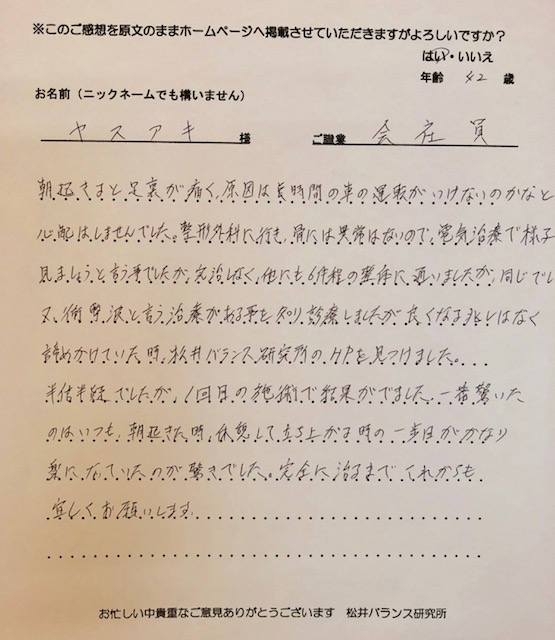 ※このご感想を原文のままホームページへ掲載させていただきますがよろしいですか？
はい・いいえ
年齢 42 歳
お名前（ニックネームでも構いません）
ヤスアキ 様 ご職業 会社員
朝起きると足裏が痛く、原因は長時間の車の運転がいけないのかなと
心配はしませんでした。整形外科に行き、骨には異常はないので、電気治療で様子
見ましょうと言う事でしたが、完治しなく、他にも6件程の整体に通いましたが、同じでし
又、衝撃波と言う治療がある事を知り診療しましたが良くなる兆しはなく
諦めかけていた時、松井バランス研究所のHPを見つけました。...
半信半疑でしたが、1回目の施術で結果がでました。一番驚いた
のはいつも、朝起きた時、休憩して立ち上がる時の一歩目がかなり
楽になっていたのが驚きでした。完全に治るまでこれからも
宜しくお願いします
お忙しい中貴重なご意見ありがとうございます 松井バランス研究所